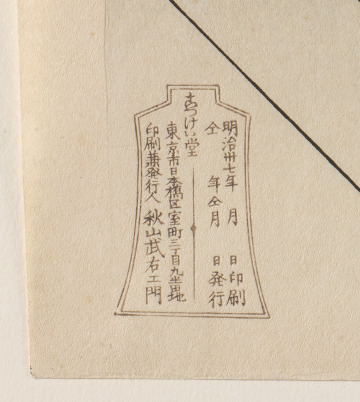 明治卅七年 月 日印刷
仝 年仝月 日発行
こっけい堂
東京市日本橋区室町三丁目九番地
印刷兼発行人 秋山武右エ門